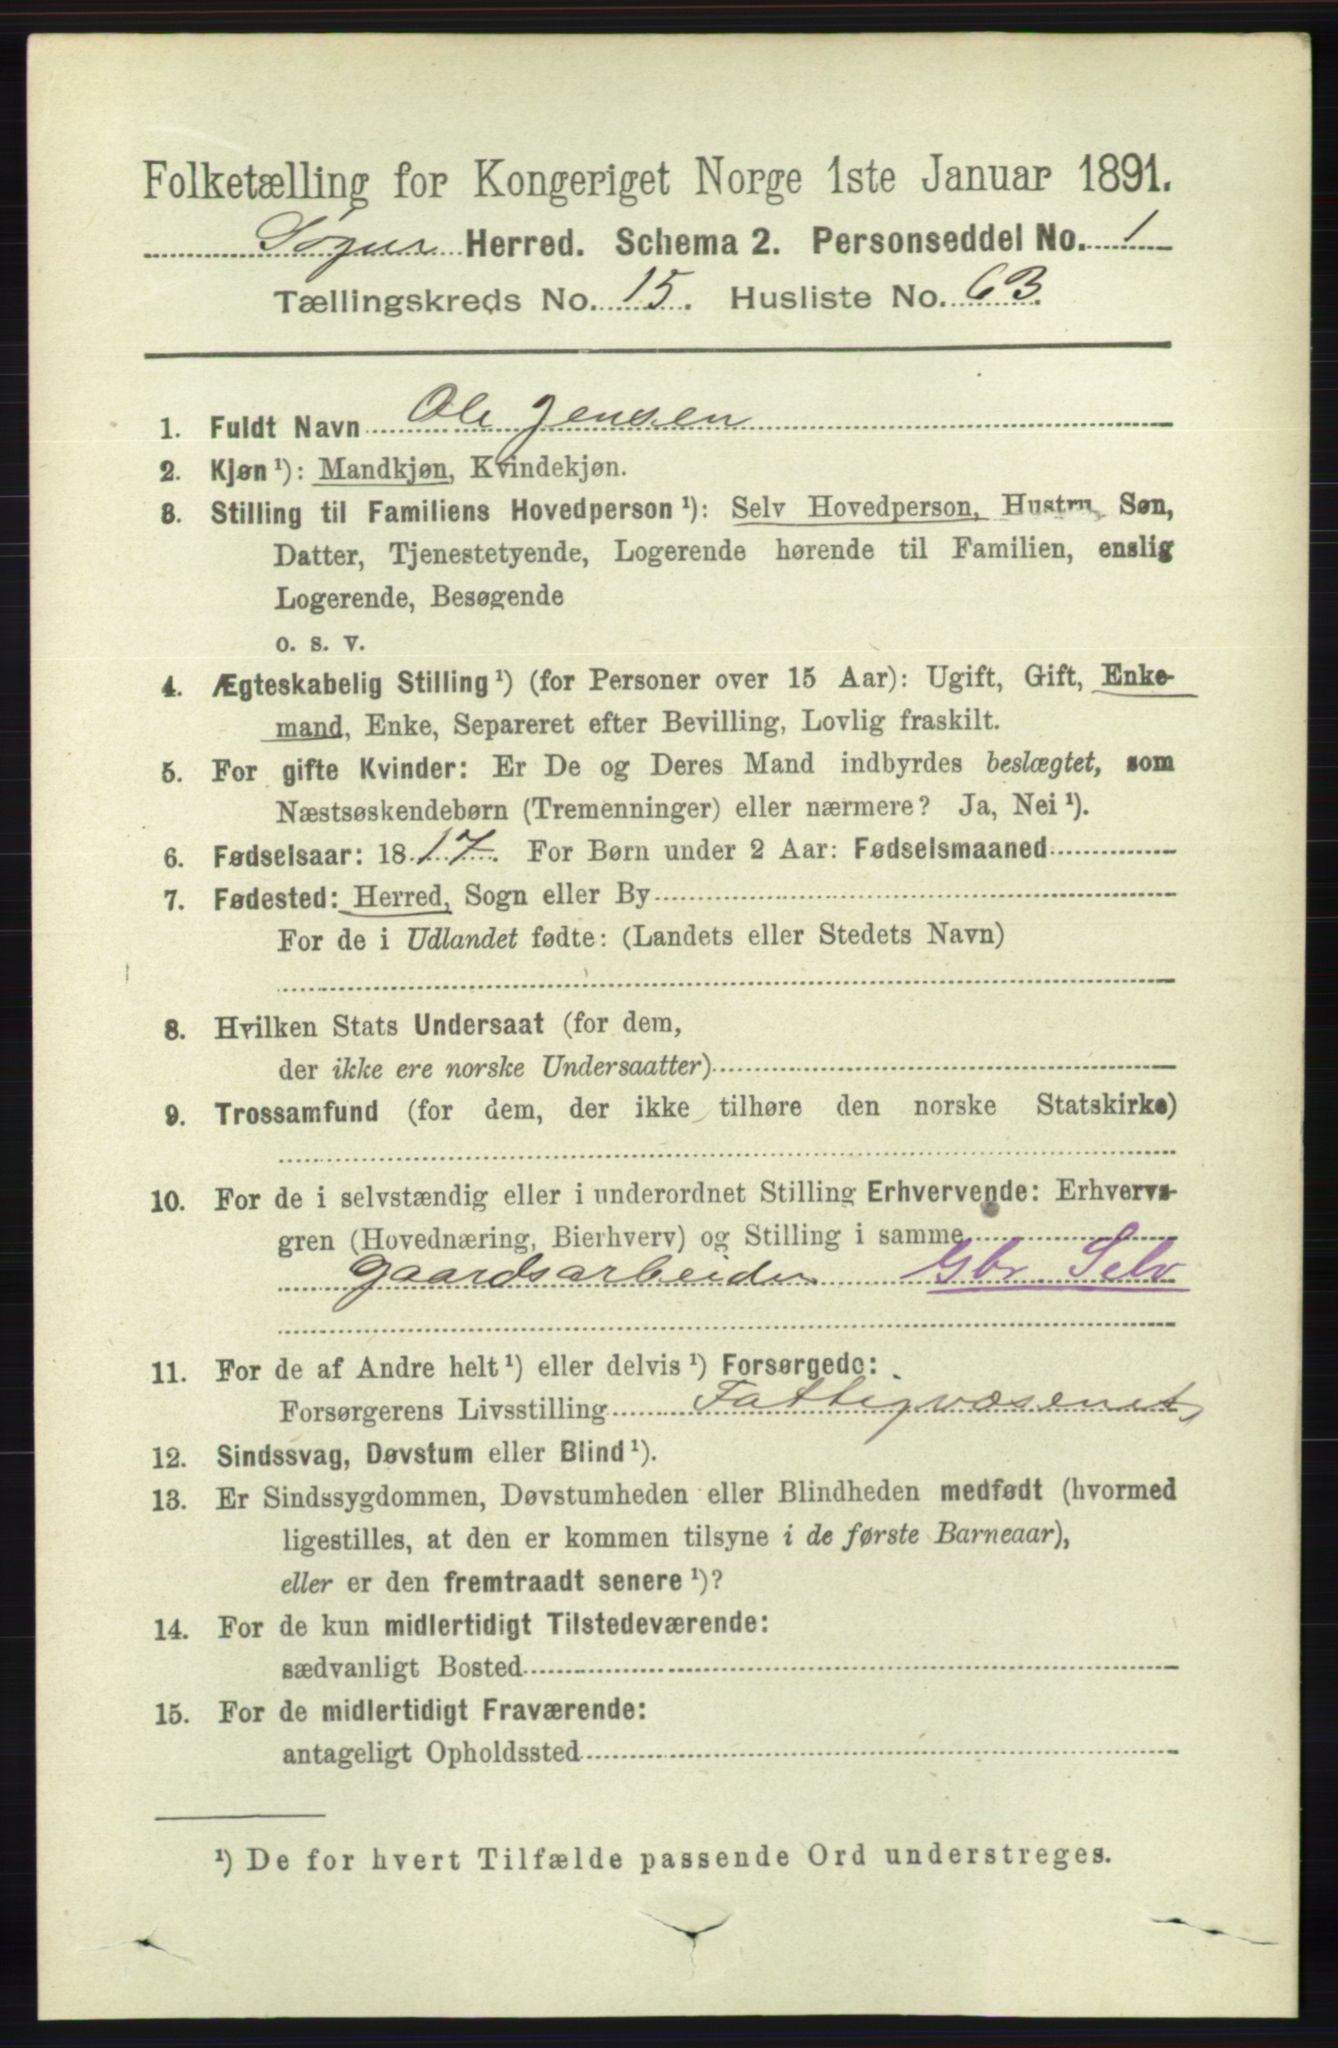 Folketælling for Kongeriget Norge 1ste Januar 1891.
Søgne Herred. Schema 2. Personseddel No. 1
Tællingskreds No. 15. Husliste No. 63.
1. Fuldt Navn Ole Jensen
2. Kjøn ¹): Mandkjøn, Kvindekjøn.
3. Stilling til Familiens Hovedperson ¹): Selv Hovedperson, Hustru, Søn,
Datter, Tjenestetyende, Logerende hørende til Familien, enslig
Logerende, Besøgende
o. s. v.
4. Ægteskabelig Stilling ¹) (for Personer over 15 Aar): Ugift, Gift, Enke-
mand, Enke, Separeret efter Bevilling, Lovlig fraskilt.
5. For gifte Kvinder: Er De og Deres Mand indbyrdes beslægtet, som
Næstsøskendebørn (Tremenninger) eller nærmere? Ja, Nei ¹).
6. Fødselsaar: 1817. For Børn under 2 Aar: Fødselsmaaned
7. Fødested: Herred, Sogn eller By
For de i Udlandet fødte: (Landets eller Stedets Navn)
8. Hvilken Stats Undersaat (for dem,
der ikke ere norske Undersaatter)
9. Trossamfund (for dem, der ikke tilhøre den norske Statskirke)
10. For de i selvstændig eller i underordnet Stilling Erhvervende: Erhvervs-
gren (Hovednæring, Bierhverv) og Stilling i samme
Gaardsarbeider Gbr Selv
11. For de af Andre helt ¹) eller delvis ¹) Forsørgede:
Forsørgerens Livsstilling Fattigvæsenet,
12. Sindssvag, Døvstum eller Blind ¹).
13. Er Sindssygdommen, Døvstumheden eller Blindheden medfødt (hvormed
ligestilles, at den er kommen tilsyne i de første Barneaar),
eller er den fremtraadt senere ¹)?
14. For de kun midlertidigt Tilstedeværende:
sædvanligt Bosted
15. For de midlertidigt Fraværende:
antageligt Opholdssted
¹) De for hvert Tilfælde passende Ord understreges.